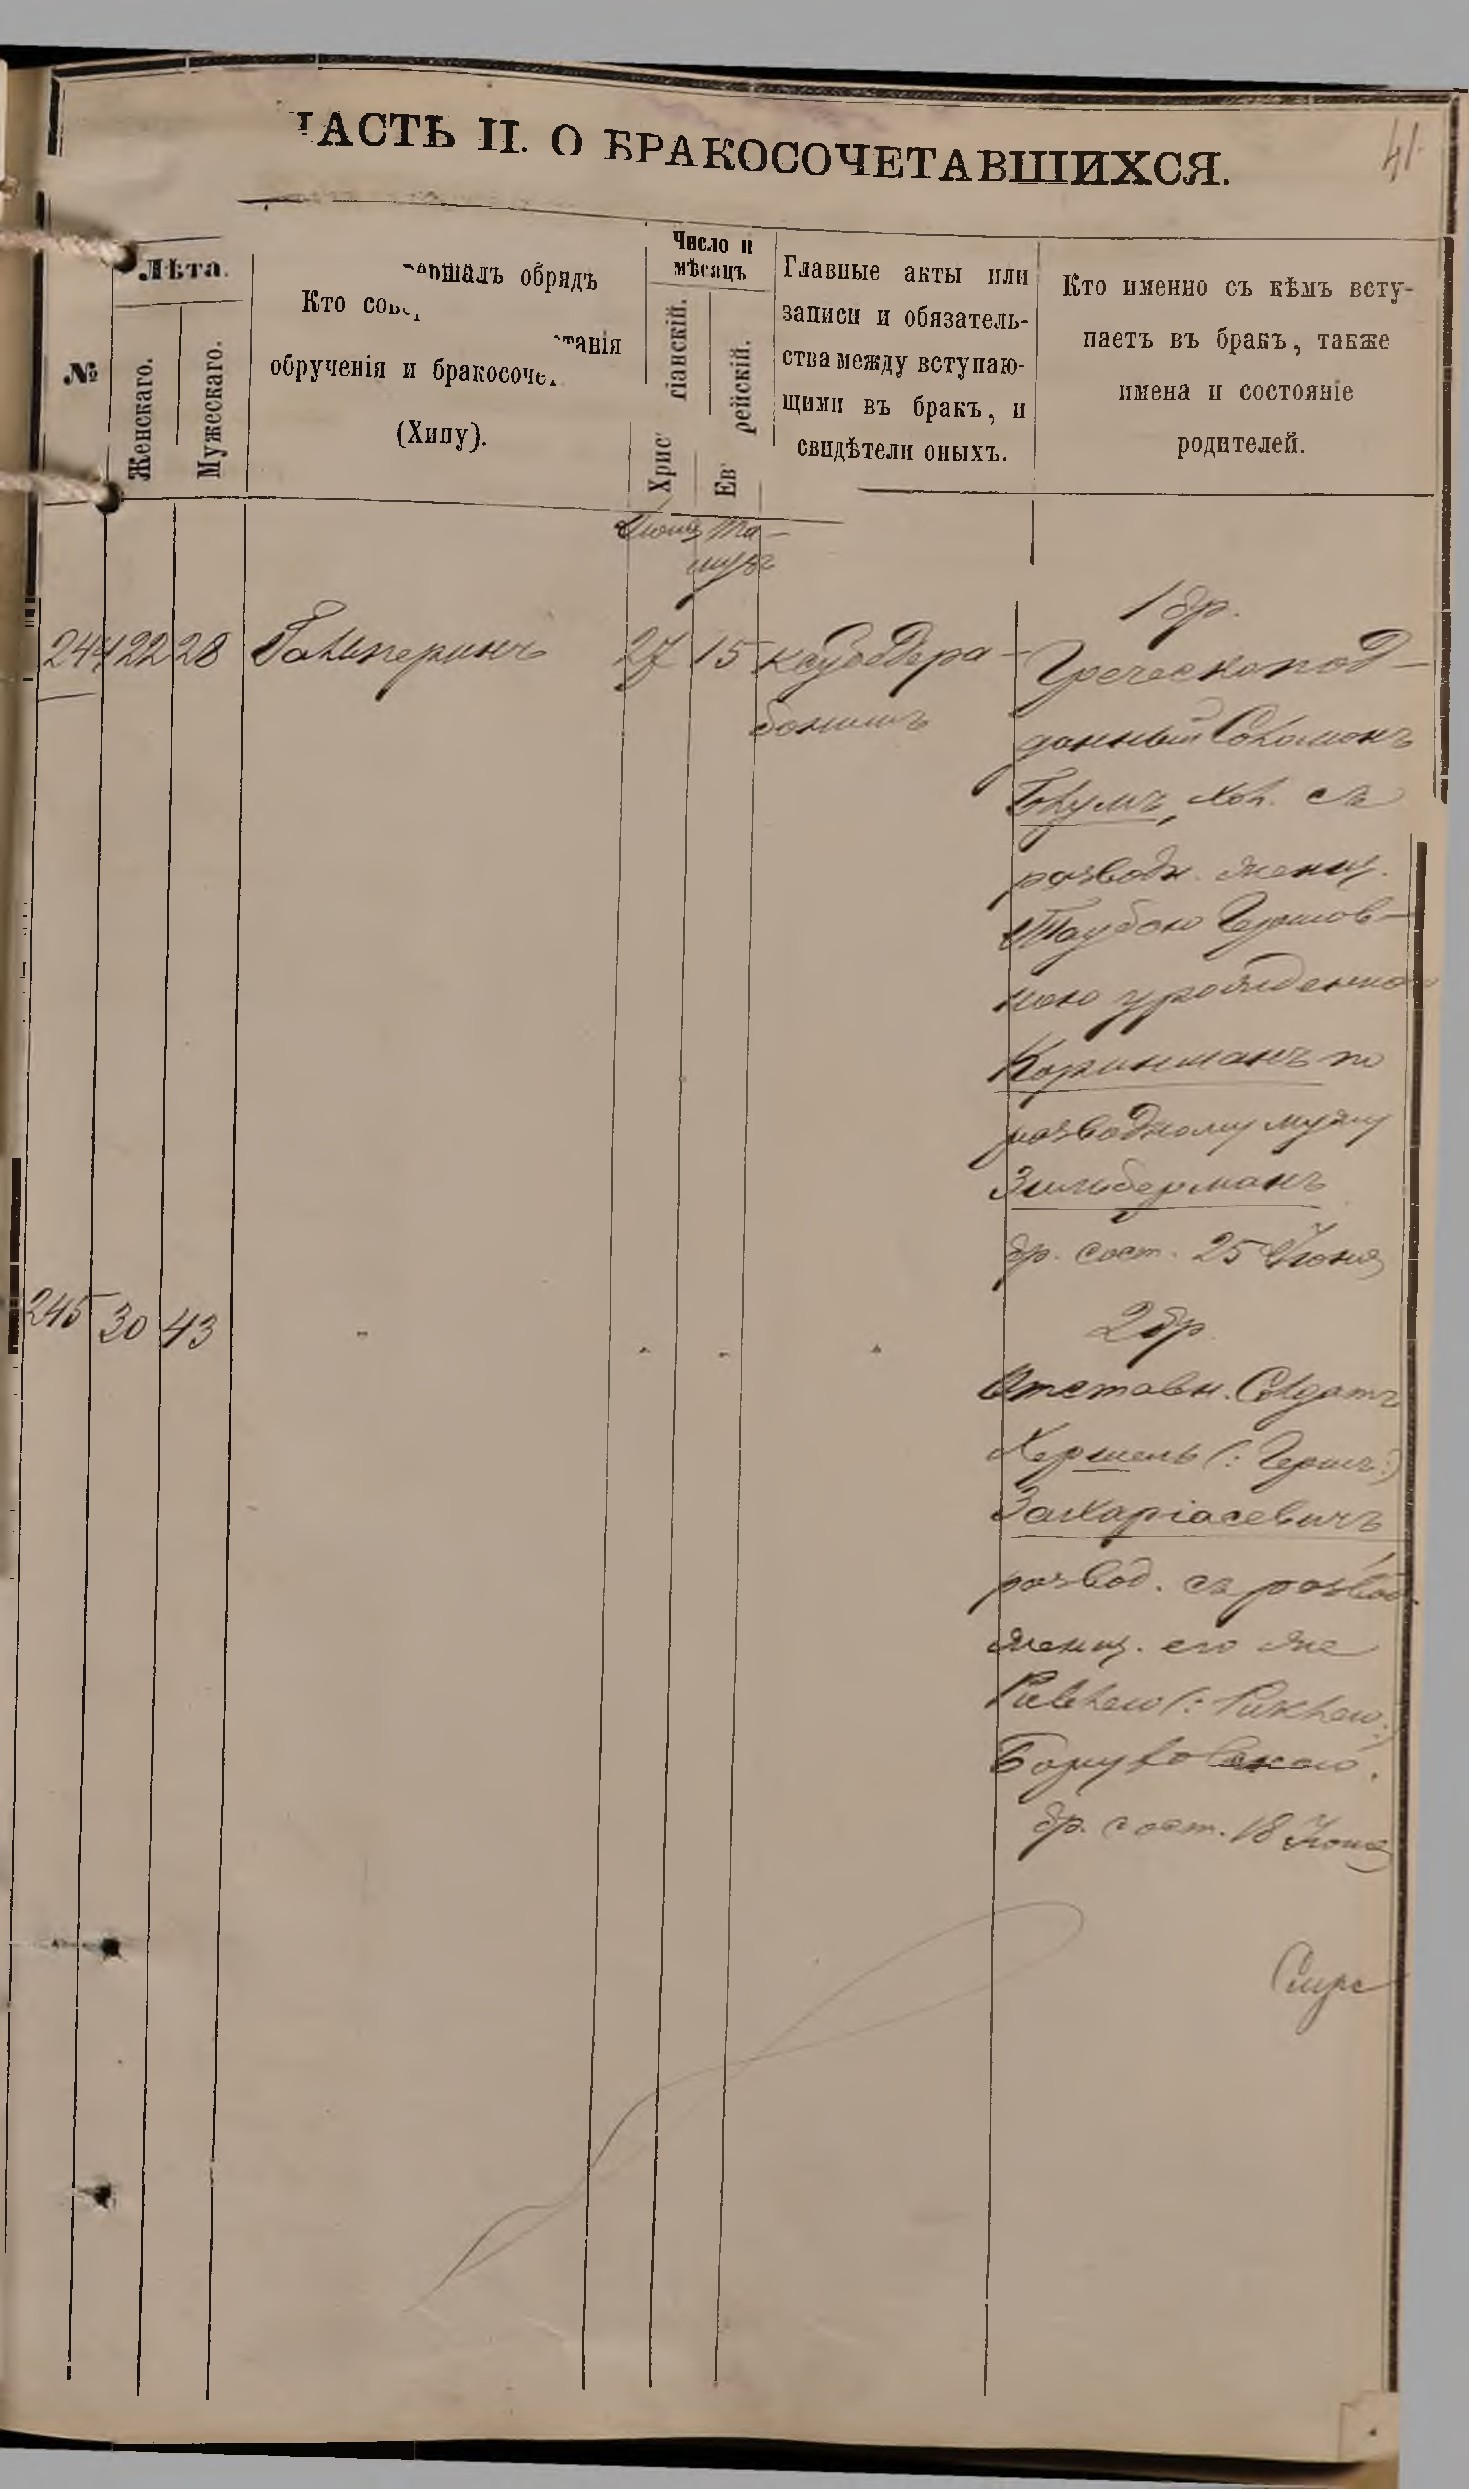 ЧАСТЬ II. О БРАКОСОЧЕТАВШИХСЯ.
41.
№
Лѣта.
Женскаго.
Мужескаго.
Кто совершалъ обрядъ
обрученія и бракосочетанія
(Хипу).
Число и
мѣсяцъ
Христіанскій.
Еврейскій.
Главные акты или
записи и обязатель-
ства между вступаю-
щими въ бракъ, и
свидѣтели оныхъ.
Кто именно съ кѣмъ всту-
паетъ въ бракъ, также
имена и состояніе
родителей.
Іюня Та-
музъ
1 бр.
244 22 28 Гальперинъ 27 15 ксубедера-
бонимъ
Греческопод-
данный Соломонъ
Блумъ, хол. съ
разводн. женщ.
Таубою Гершов-
ною урожденною
Коринманъ по
разводному мужу
Зильберманъ
бр. сост. 25 Іюня
245 30 43 " " " "
2 бр
Отставн. Солдатъ
Хершель (: Гершъ:)
Захаріасевичъ
развод. съ развод.
женщ. его же
Ривкею
бр. сост. 18 Іюня